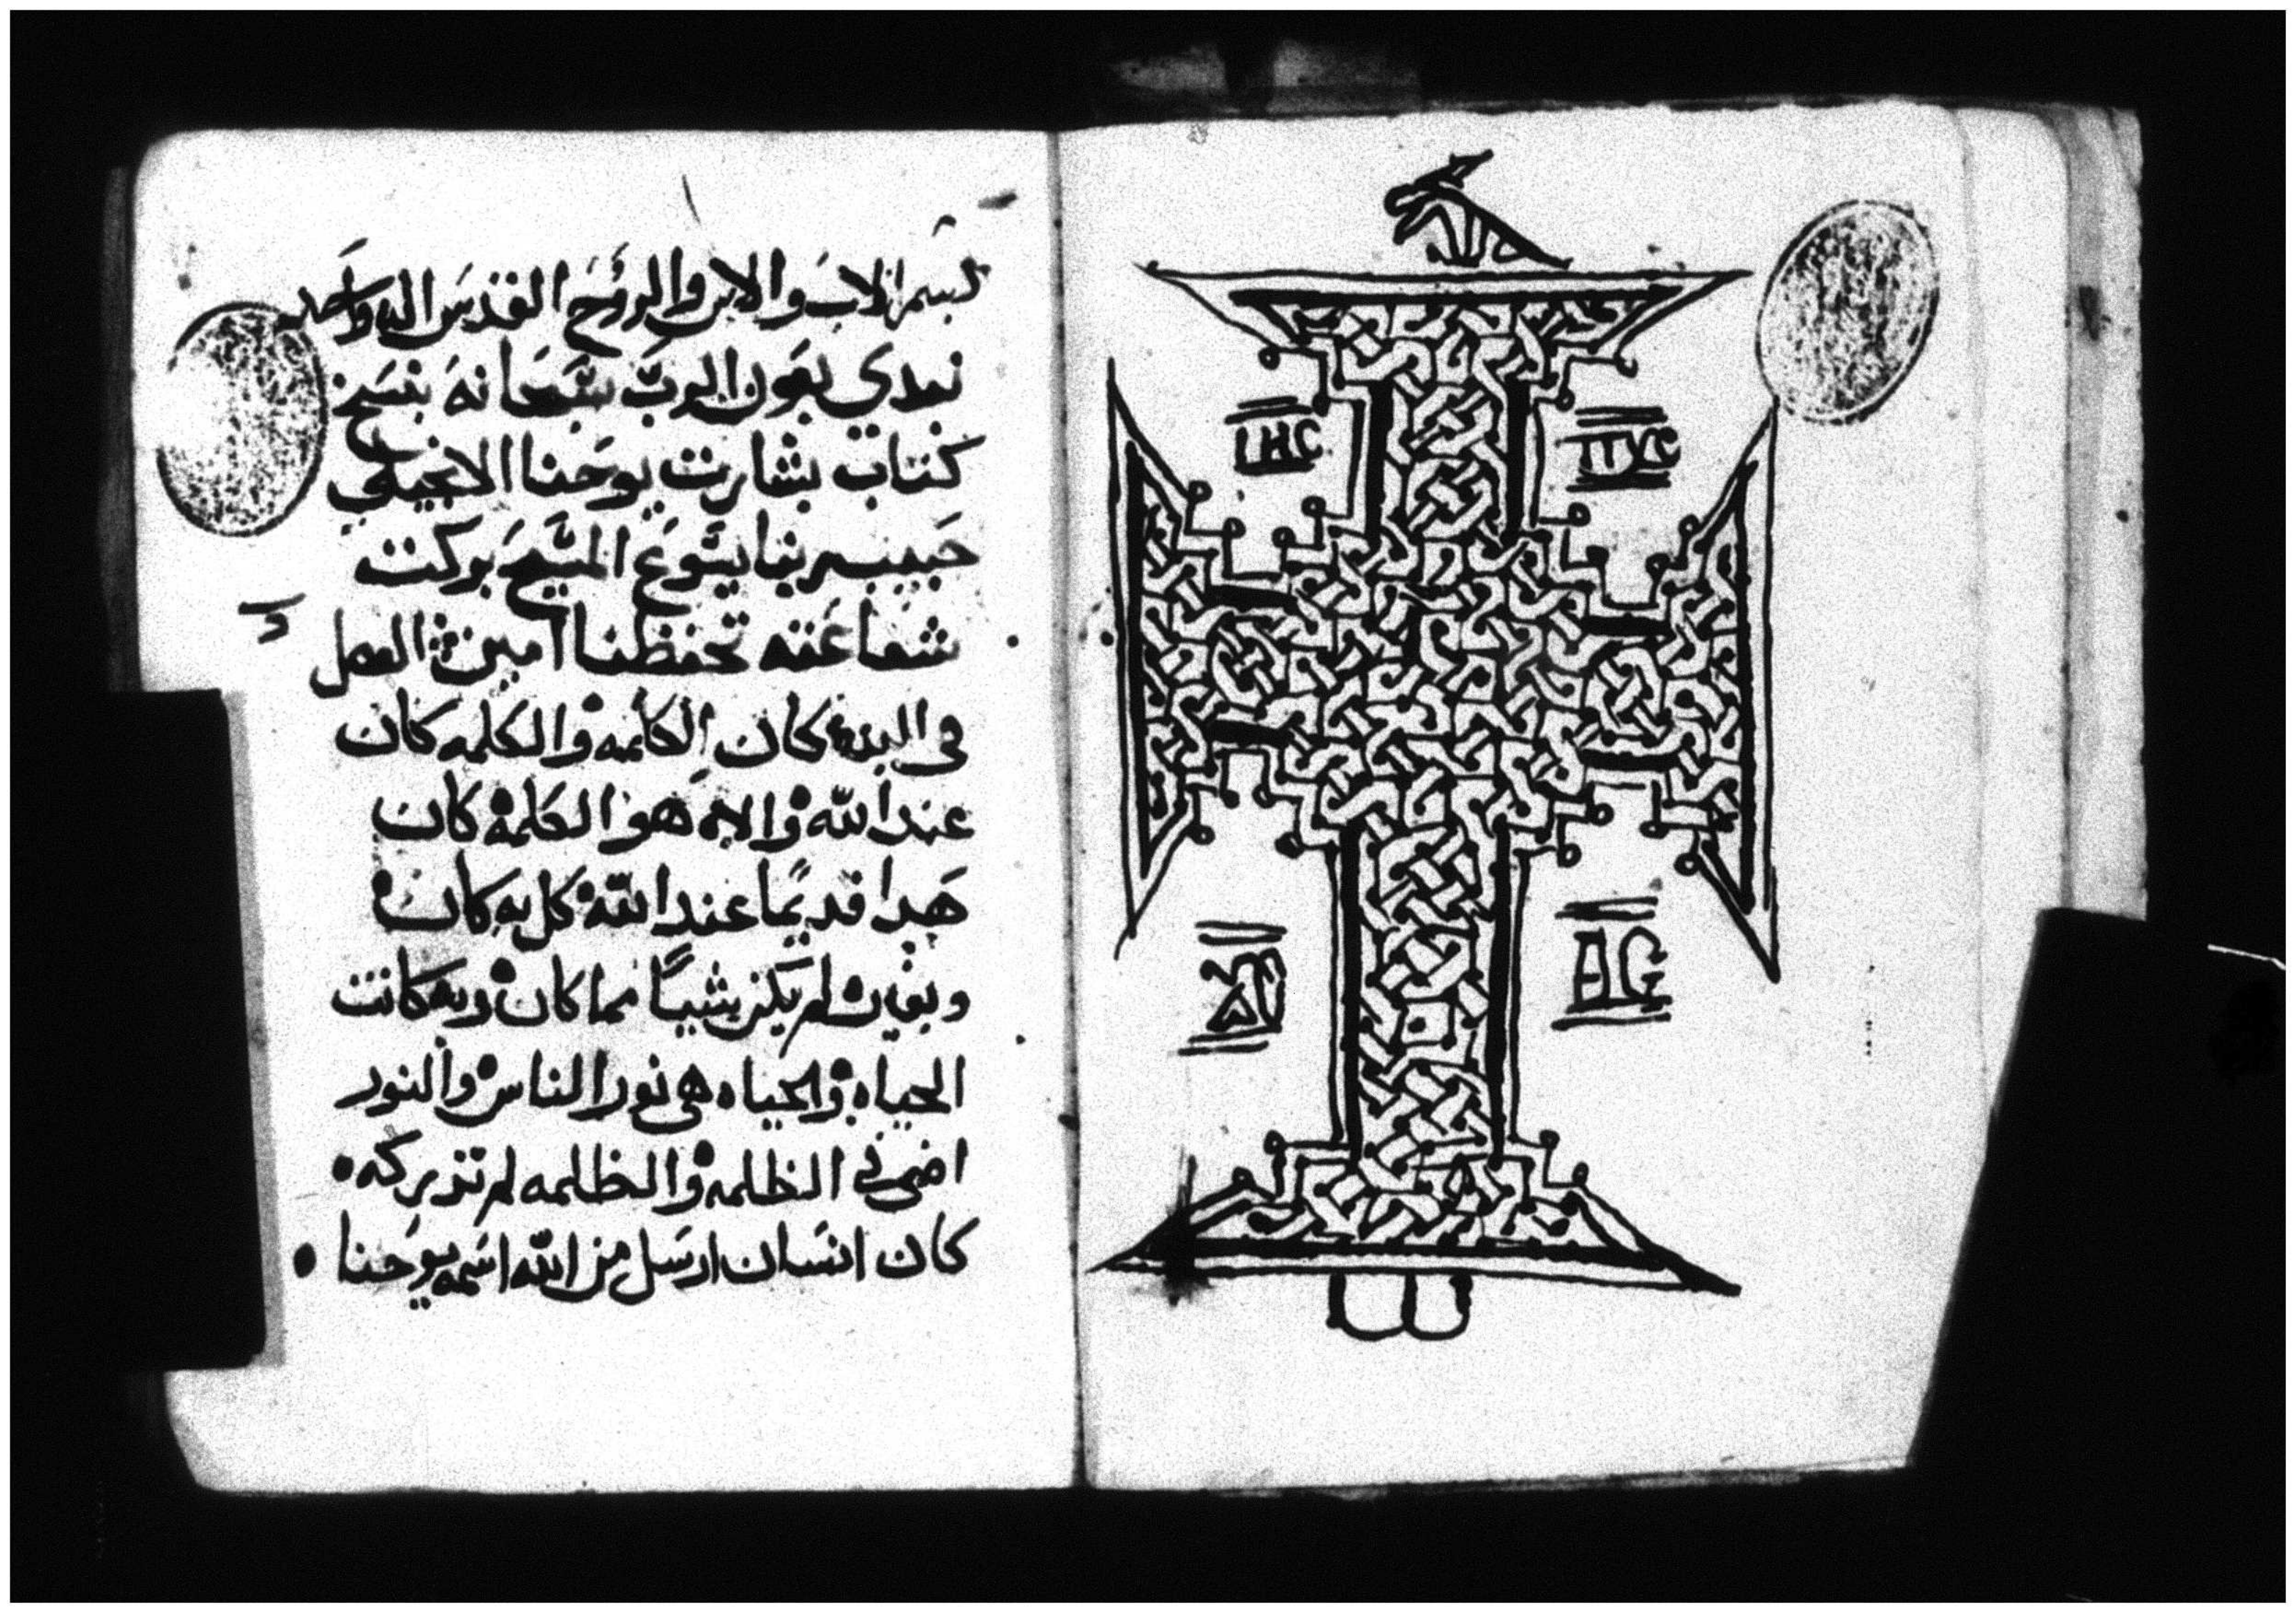 ΙΗC ΠΧC
بسم الاب والابن والروح القدس اله واحد
نبدي بعون الرب سبحانه بنسخ
كتاب بشارت يوحنا الانجيلي
حبيب ربنا يسوع المسيح بركت
شفاعته تحفظنا امين الفصل
في البدء كان الكلمه والكلمه كان
عند الله والاه هو الكلمه كان
هدا قديما عند الله كل به كان
وبغيره لم يكن شيا مما كان وبه كانت
الحياه والحياه هي نور الناس والنور
اضي في الظلمه والظلمه لم تدركه
كان انسان ارسل من الله اسمه يوحنا